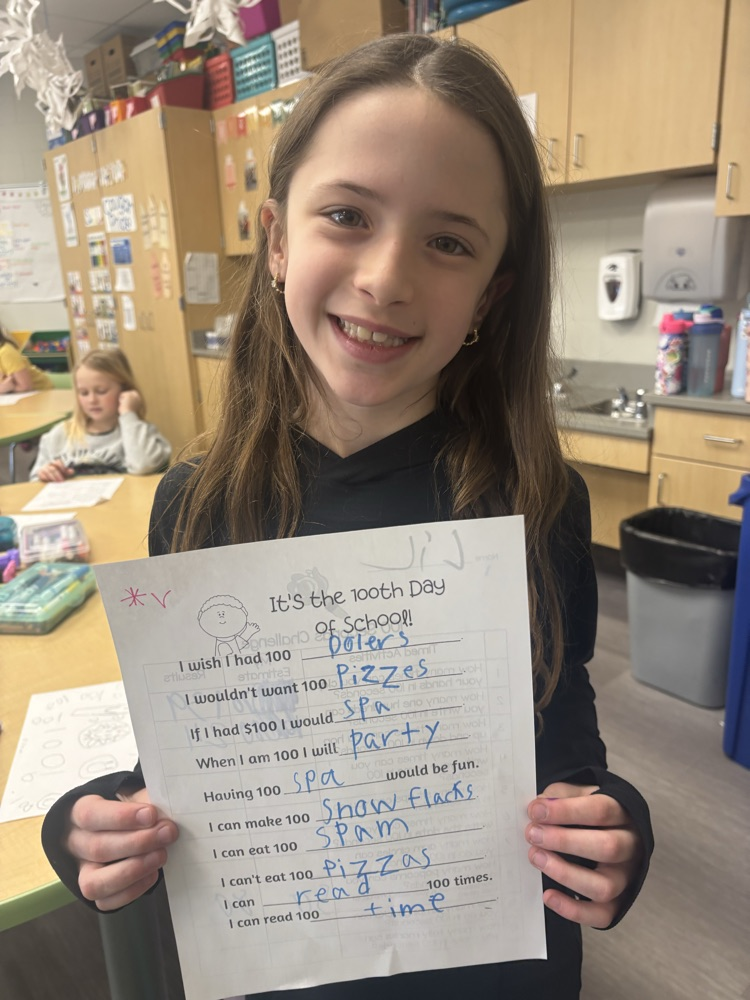 It's the 100th Day
of School!
I wish I had 100 Dolers
I wouldn't want 100 Pizzes
If I had $100 I would spa
When I am 100 I will party
Having 100 spa would be fun.
I can make 100 Snow flacks
I can eat 100 spam
I can't eat 100 pizzas
I can read 100 times.
I can read 100 time